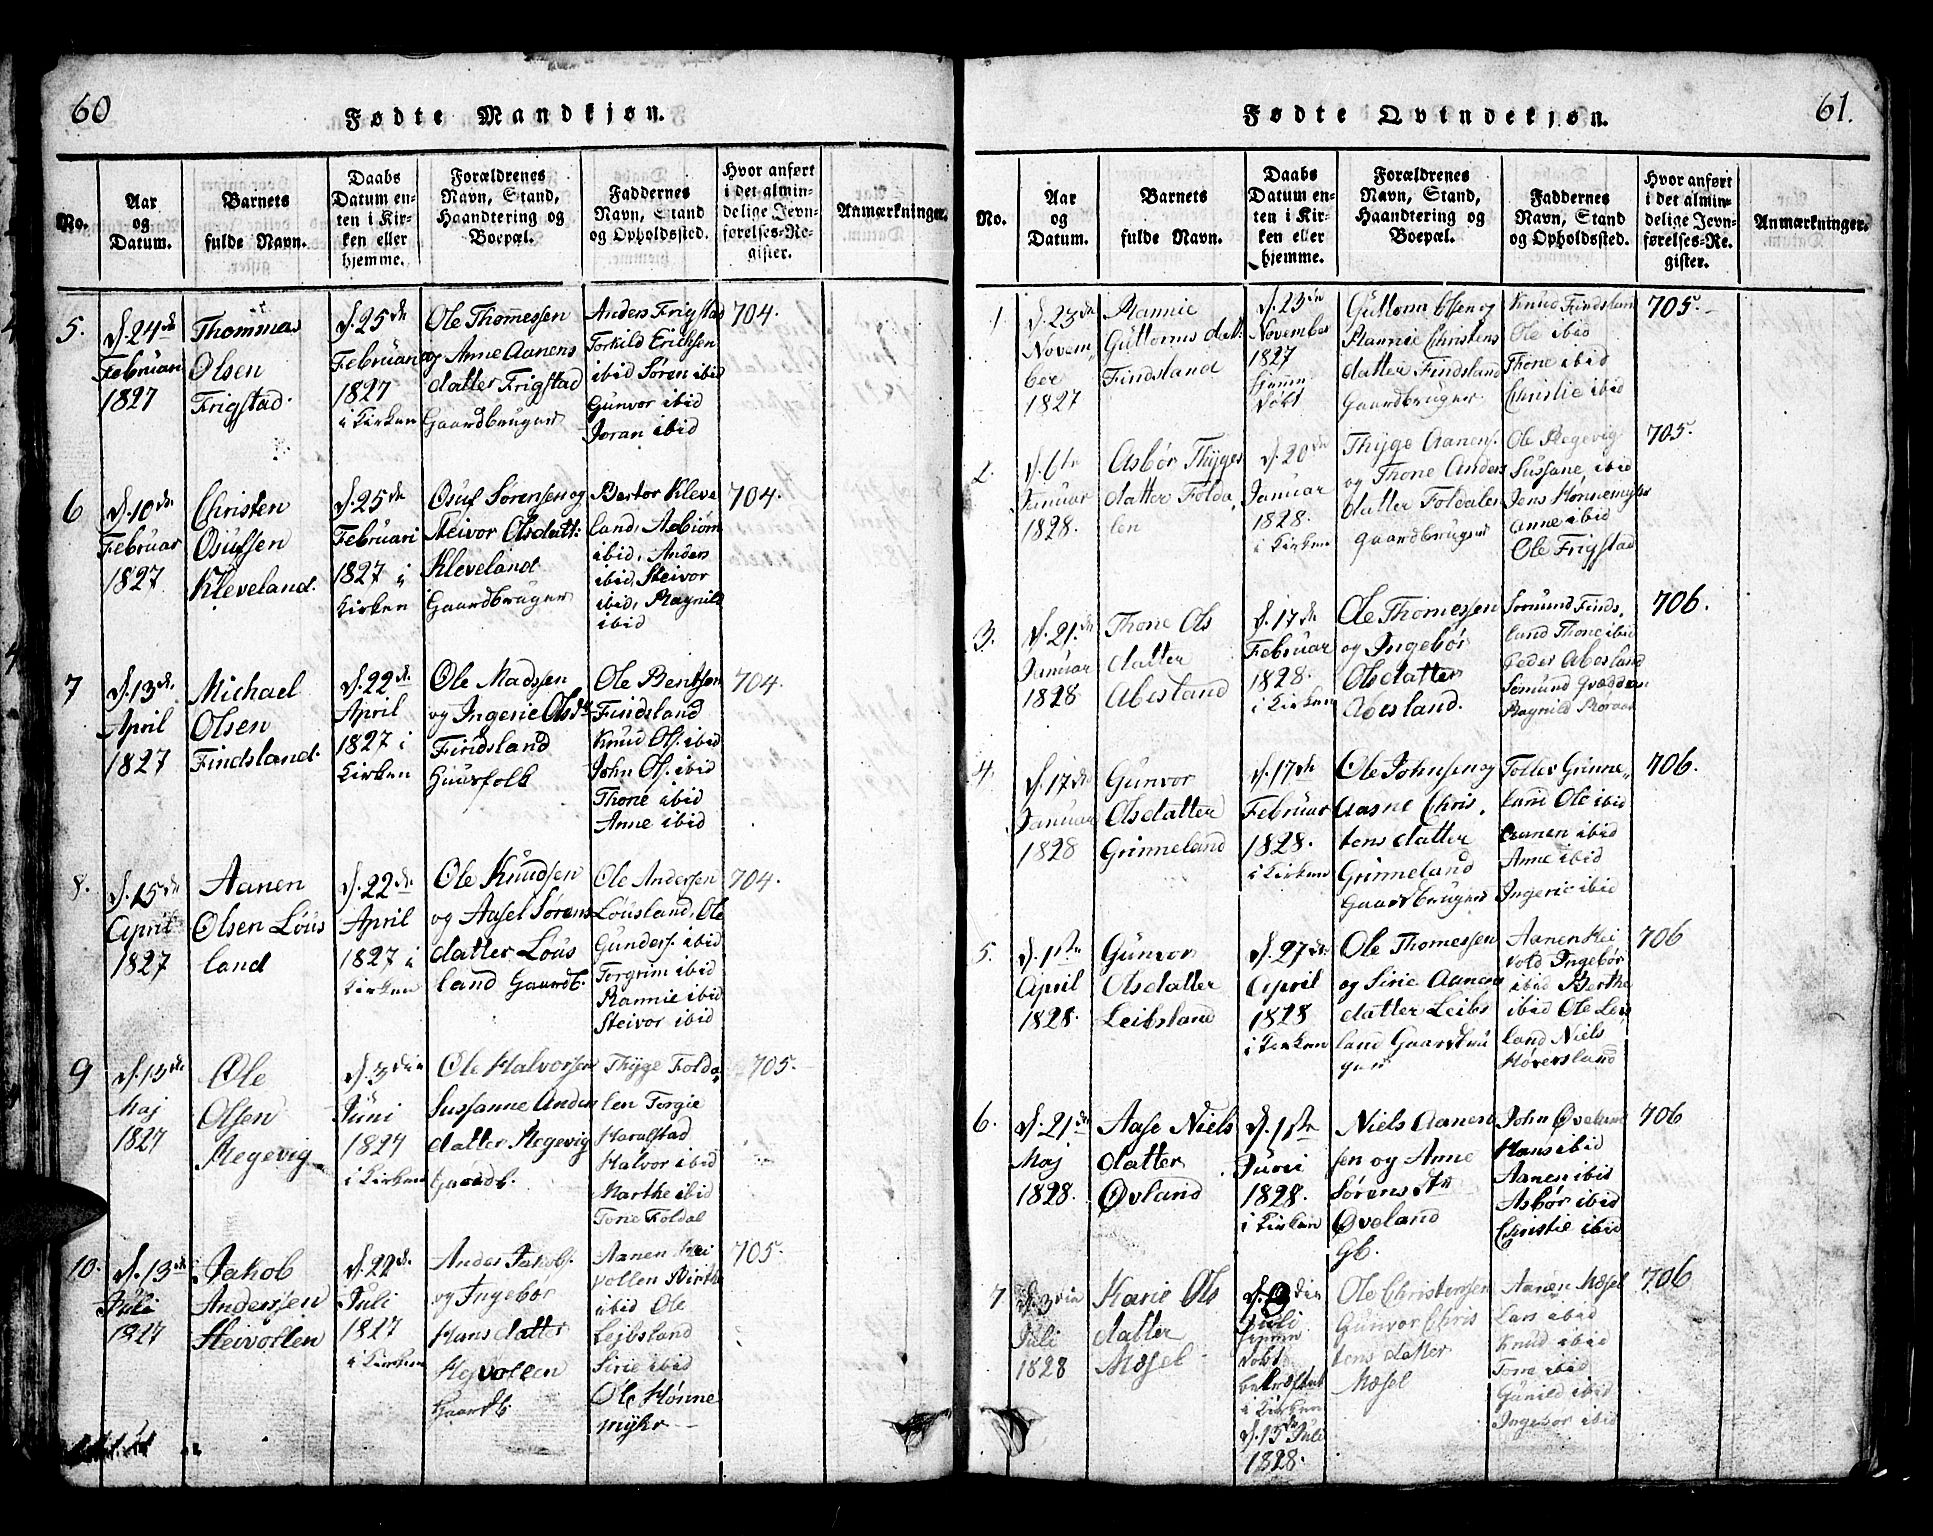 60
Fødte Mandkjøn.
No.
Aar
og
Datum.
Barnets
fulde Navn.
Daabs
Datum en-
ten i Kir-
ken eller
hjemme.
Forældrenes
Navn, Stand,
Haandtering og
Boepæl.
Faddernes
Navn, Stand
og Opholdssted.
Hvor anført
i det almin-
delige Jevn-
førelses-Re-
gister.
Anmærkninger.
5.
d. 24de
Februari
1827
Thommas
Olsen
Frigstad.
d. 25de
Februari
1827
i Kirken
Ole Thomessen
og Anne Aanens
datter Frigstad
Gaardbruger
Anders Frigstad
Torkild Erichsen
ibid Sören ibid
Gunvor ibid
Joran ibid
704.
6
d. 10de
Februar
1827
Christen
Osulfsen
Kleveland.
d. 25de
Februari
1827 i
Kirken
Osuf Sörensen og
Steivor Olsdatt:
Kleveland
Gaardbruger
Bertor Kleve
land, Asbiørn
ibid, Anders
ibid, Steivor
ibid, Ragnild
ibid
704.
7
d. 13de
April
1827
Michael
Olsen
Findsland.
d. 22de
April
1827 i
Kirken
Ole Madssen
og Ingerie Olsdtr
Findsland
Huusfolk
Ole Bentsen
Findsland
Knud Ols. ibid
John Ols. ibid
Thone ibid
Anne ibid
704.
8.
d. 15de
April
1827
Aanen
Olsen Löus
land
d. 22de
April
1827 i
Kirken
Ole Knudsen
og Aasel Sörens
datter Löus
land Gaardb.
Ole Andersen
Löusland, Ole
Gunders. ibid
Torgrim ibid
Rannie ibid
Steivor ibid
704.
9
d. 13de
Maj
1827
Ole
Olsen
Stegevig
d. 3die
Juni
1827
i Kirken
Ole Halvorsen
Sussanne Anders
datter Stegevig
Gaardb.
Thyge Folda
len Torgie
Haralstad
Halvor ibid
Marthe ibid
Torie Foldal
705.
10.
d. 13de
Juli
1827
Jakob
Anderssen
Heivollen
d. 22de
Juli
1827
i Kirken
Anders Jakobs.
og Ingebor
Hans datter
Hejvollen
Gaardb.
Aanen Hei
vollen Birthe
ibid Ole
Lejbsland
Sirie ibid
Ole Hønne
mykr
705.
61.
Fødte Qvindekjøn.
No.
Aar
og
Datum.
Barnets
fulde Navn.
Daabs
Datum en-
ten i Kir-
ken eller
hjemme.
Forældrenes
Navn, Stand,
Haandtering og
Boepæl.
Faddernes
Navn, Stand
og Opholdssted.
Hvor anført
i det almin-
delige Jevn-
førelses-Re-
gister.
Anmærkninger.
1.
d. 23de
Novem
ber
1827
Rannie
Guttorms dat:
Findsland
d. 23de
November
1827
hjemme
døbt
Guttorm Olsen og
Rannie Christens
datter Findsland
Gaardbruger
Knud Findsland
Ole ibid
Thone ibid
Christie ibid
705.
2.
d. 6te
Januar
1828.
Asbør Thyges
datter Folda
len
d. 20de
Januar
1828.
i Kirken
Thyge Aanens.
og Thone Anders
datter Foldalen
Gaardbruger
Ole Stegevig
Sussane ibid
Jens Hønnemykr
Anne ibid
Ole Frigstad
705.
3.
d. 21de
Januar
1828
Thone Ols
datter
Abesland
d. 17de
Februar
1828.
i Kirken
Ole Thomessen
og Ingebör
Olsdatter
Abesland.
Sormund Finds
land Thone ibid
Peder Abesland
Ragnild
706.
4.
d. 17de
Januar
1828
Gunvor
Olsdatter
Grinneland
d. 17de
Februar
1828.
i Kirken
Ole Johnsen og
Aasne Chris
tens datter
Grinneland
Gaardbruger
Tollev Grinne
land Ole ibid
Aanen ibid
Anne ibid
Ingerie ibid
706.
5.
d. 1ste
April
1828.
Gunvor
Olsdatter
Leibsland
d. 27de
April
1828
i Kirken
Ole Thomessen
og Sirie Aanen
datter Leibs
land Gaardbru
ger
Aanen Hei
vold Ingebør
ibid Berthe
ibid Ole Leis
land Niels
Høversland
706
6.
d. 21de
Maj
1828.
Aase Niels
datter
Øvland
d. 1ste
Juni
1828.
i Kirken
Niels Aanen
sen og Anne
Sørens dtr
Øveland
Gb.
John Øveland
Hans ibid
Aanen ibid
Asbør ibid
Christie ibid
706
7
d. 3die
Juli
1828
Karie Ols
datter
Møsel
Juli
hjemme
døbt
bekræftet
i Kirken
d. 13de Juli
1828.
Ole Christensen
Gunvor Chris
tens datter
Møsel
Aanen Møsel
Lars ibid
Knud ibid
Tone ibid
Gunild ibid
Ingebor ibid
706